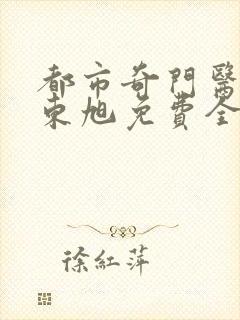 都市奇門醫
東旭免費全
徐紅萍